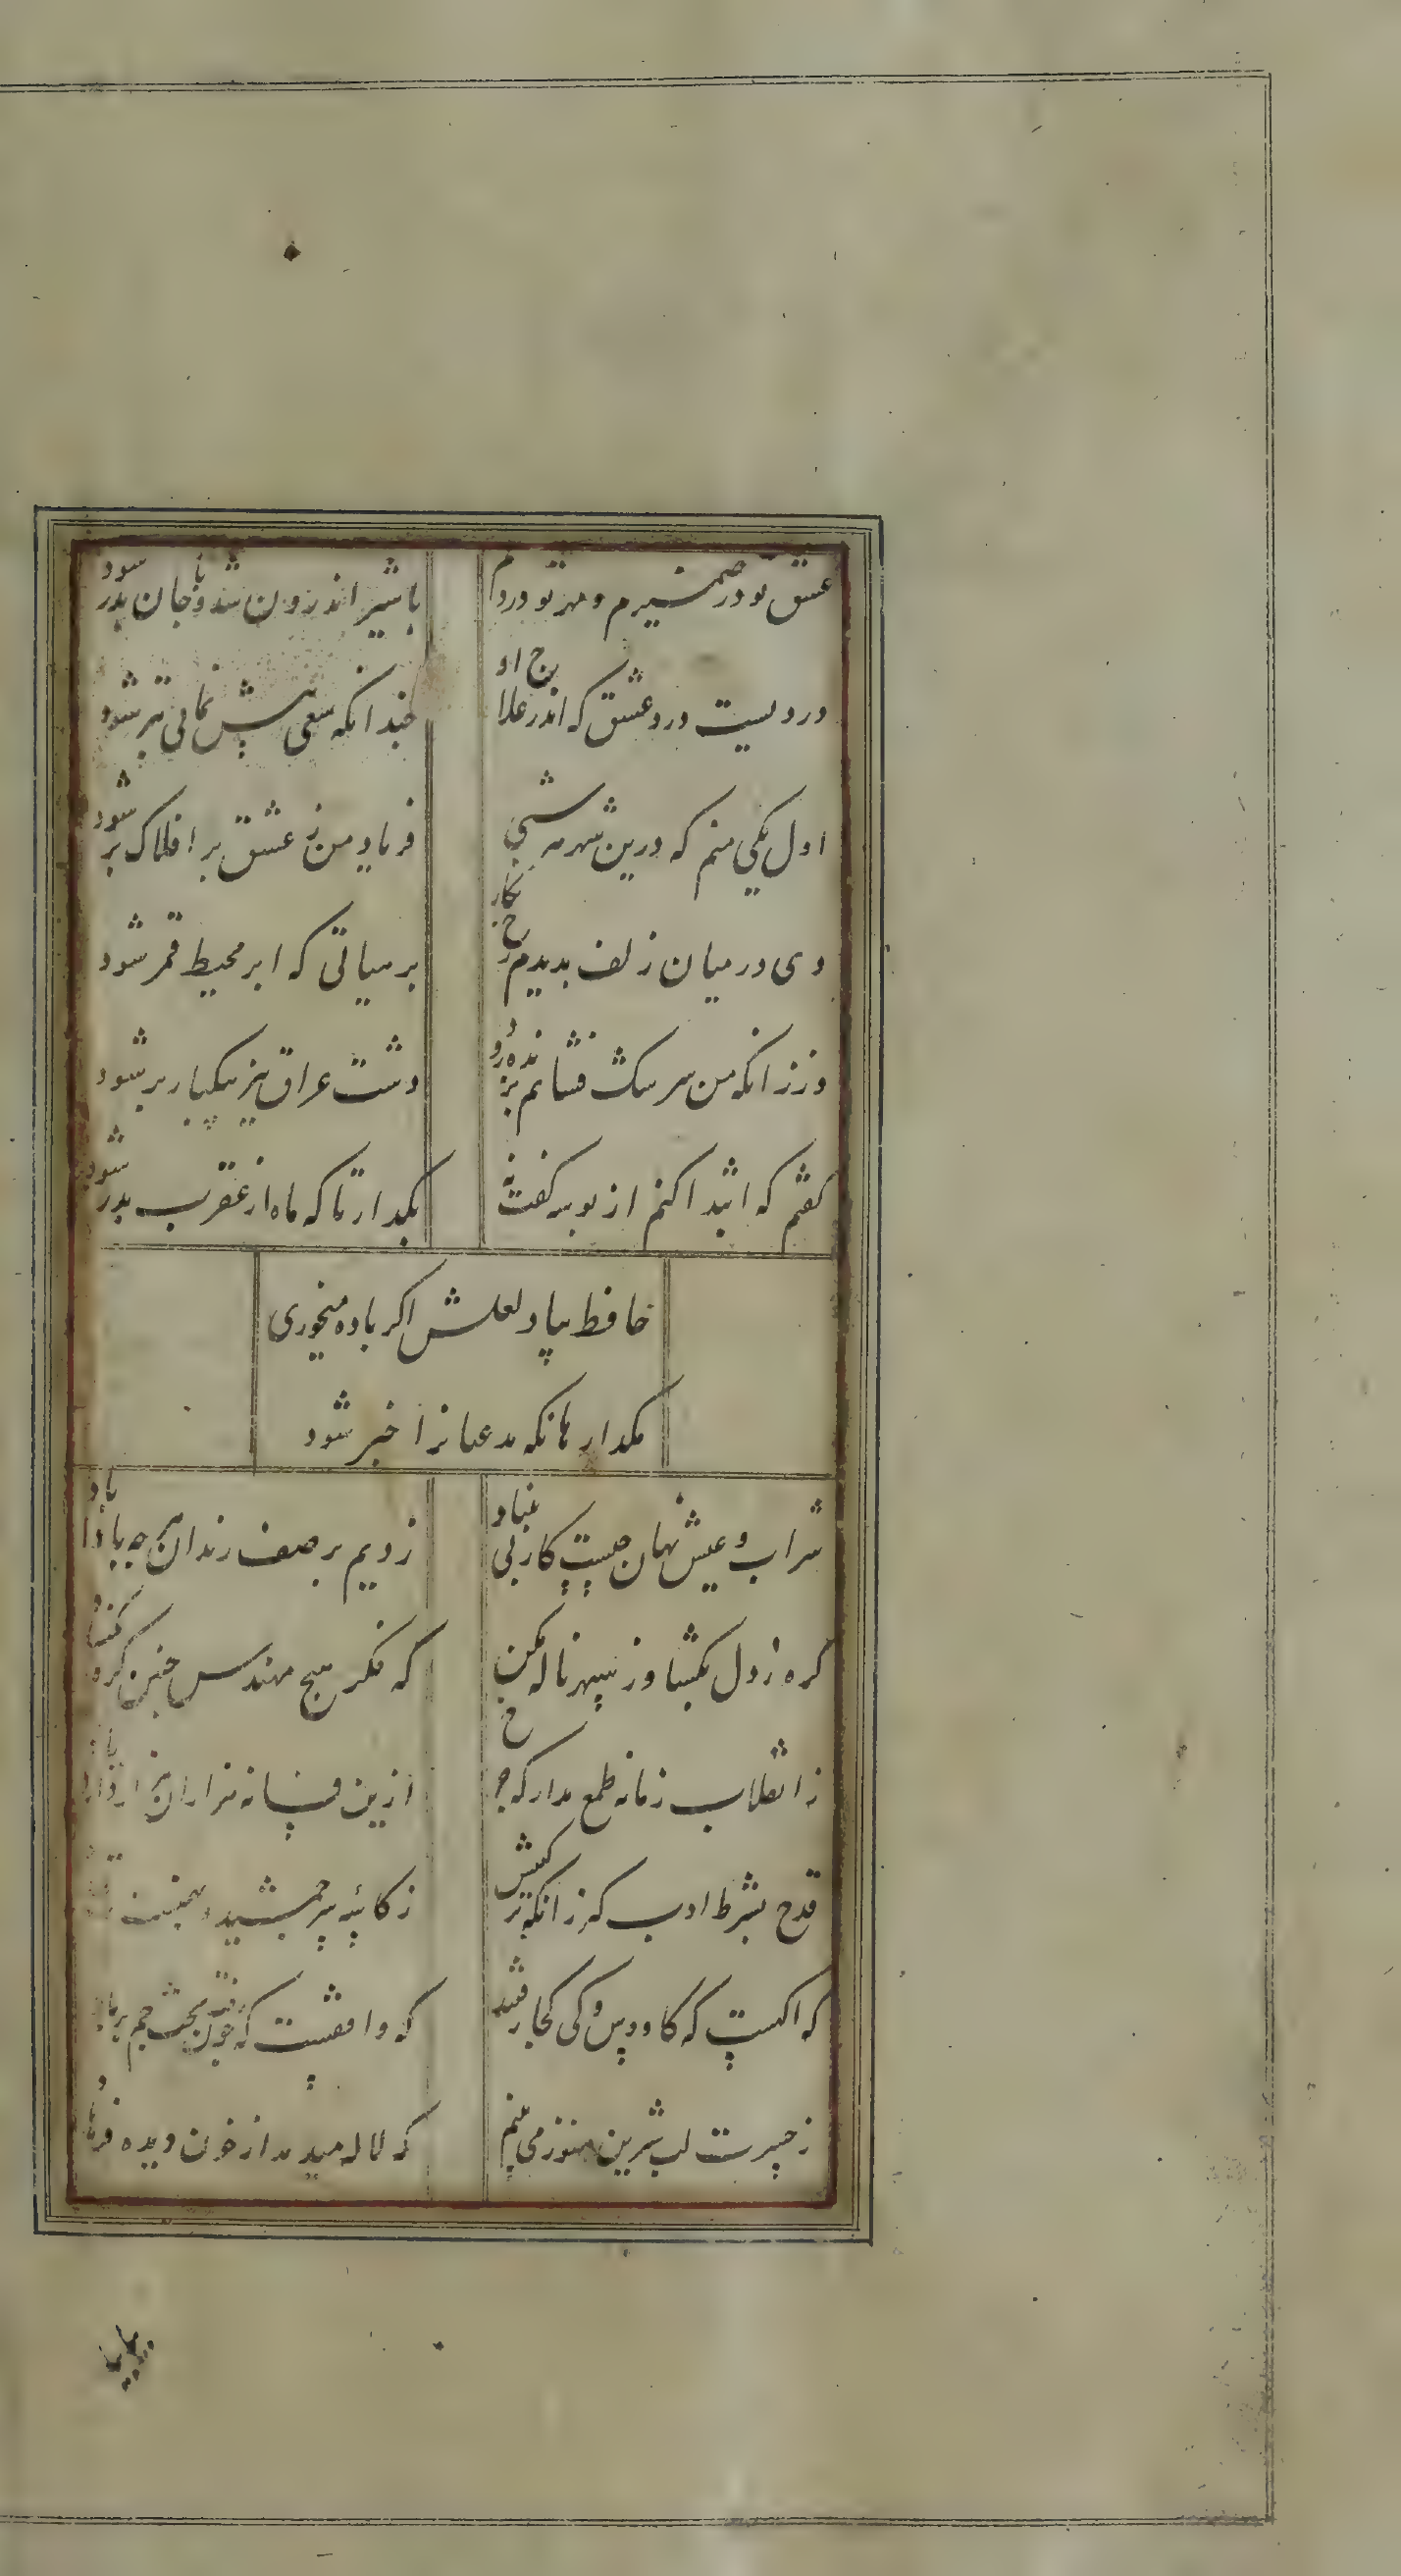 عشق تو در ضمیرم و مهر تو در دلم
با شیر اندرون شد و با جان بدر شود
دردیست درد عشق که اندر علاج او
چندانکه سعی بیش نمائی بتر شود
اول یکی منم که درین شهر هر شبی
فریاد من ز عشق بر افلاک بر شود
دی در میان زلف بدیدم رخ نگار
بر هیاتی که ابر محیط قمر شود
ورزانکه من سرشک فشانم بزنده رود
دشت عراق نیز بیکبار بر شود
کفتم که ابتدا کنم از بوسه کفت نه
بگذار تا که ماه از عقرب بدر شود
حافظ بیاد لعلش اکر باده میخوری
مگذار هانکه مدعیانرا خبر شود
شراب و عیش نهان چیست کار بی بنیاد
زدیم بر صف رندان هر چه بادا باد
کره ز دل بکشا وز سپهر ناله مکن
که فکر هیچ مهندس چنین کره نکشاد
ز انقلاب زمانه طمع مدار که چرخ
ازین فسانه هزاران هزار دارد یاد
قدح بشرط ادب کیر زانکه ترکیبش
ز کاسه سر جمشید و بهمنست
که اکهست که کاوس و کی کجا رفتند
که واقفست که چون رفت تخت جم بر باد
ز حسرت لب شیرین هنوز می بینم
که لاله میدمد از خون دیده فرهاد